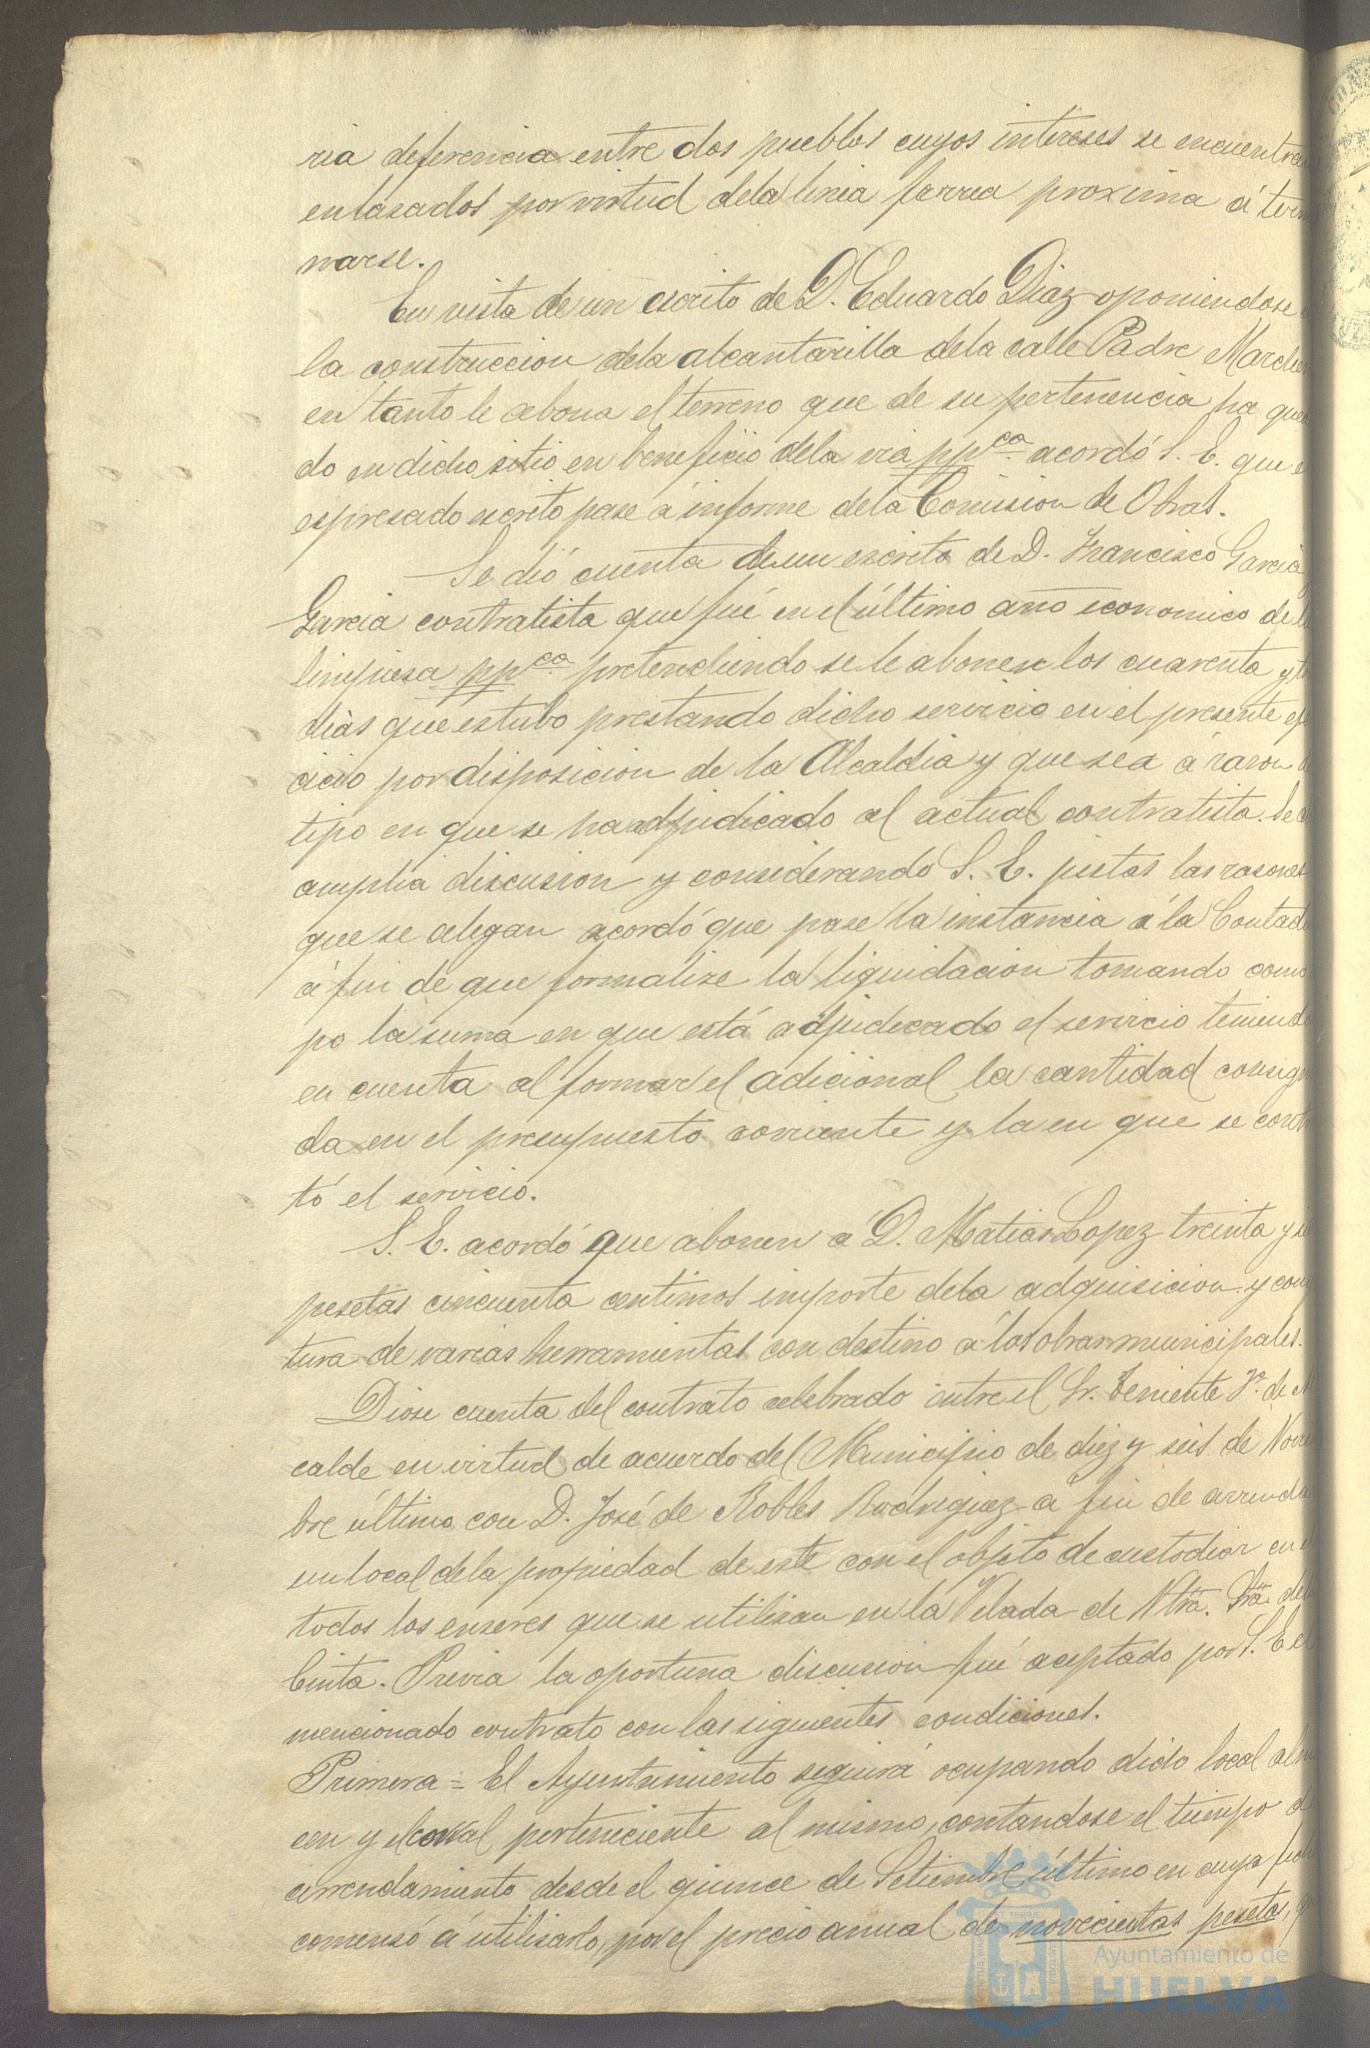 ria deferencia entre dos pueblos cuyos intereses se encuentra
enlasados por virtud dela linea ferrea proxima á term
narse.
En vista de un escrito de D. Eduardo Diaz oponiendose
la construccion dela alcantarilla dela calle Padre Marche
en tanto le abona el terreno que de su pertenencia ha que
do en dicho sitio en beneficio dela via ppca acordó S. E. que e
espresado escrito pase á informe dela Comision de Obras.
Se dió cuenta de un escrito de D. Francisco Garcia
Garcia contratista que fué en el último año economico de l
limpiesa ppca pretendiendo se le abonen los cuarenta y t
dias que estubo prestando dicho servicio en el presente eje
cicio por disposicion de la Alcaldia y que sea á razon
tipo en que se ha adjudicado al actual contratista. Se
amplia discusion y considerando S. E. justas las rasones
que se alegan acordó que pase la instancia á la Contad
á fin de que formalize la liquidacion tomando como
po la suma en que está adjudicado el servicio teniend
en cuenta al formar el adicional la cantidad consig
da en el presupuesto corriente y la en que se cont
tó el servicio.
S. E. acordó que abonen á D. Matias Lopez treinta y
pesetas cincuenta centimos importe dela adquisicion y com
tura de varias herramientas con destino á las obras municipales.
Diose cuenta del contrato celebrado entre el Sr. Teniente de A
calde en virtud de acuerdo del Municipio de diez y seis de Novi
bre último con D. José de Robles Rodriguez á fin de arrenda
un local dela propiedad de este con el objeto de custodiar en e
todos los enseres que se utilisan en la Velada de Ntra. Sra. dela
Cinta. Previa la oportuna discusion fué aceptado por S. E el
mencionado contrato con las siguientes condiciones.
Primera = El Ayuntamiento seguirá ocupando dicho local alma
cen y el corral perteneciente al mismo, contandose el tiempo d
arrendamiento desde el quince de Setiembre último en cuya fech
comensó á utilisarlo, por el precio anual de novecientas pesetas, q
Ayuntamiento de
HUELVA